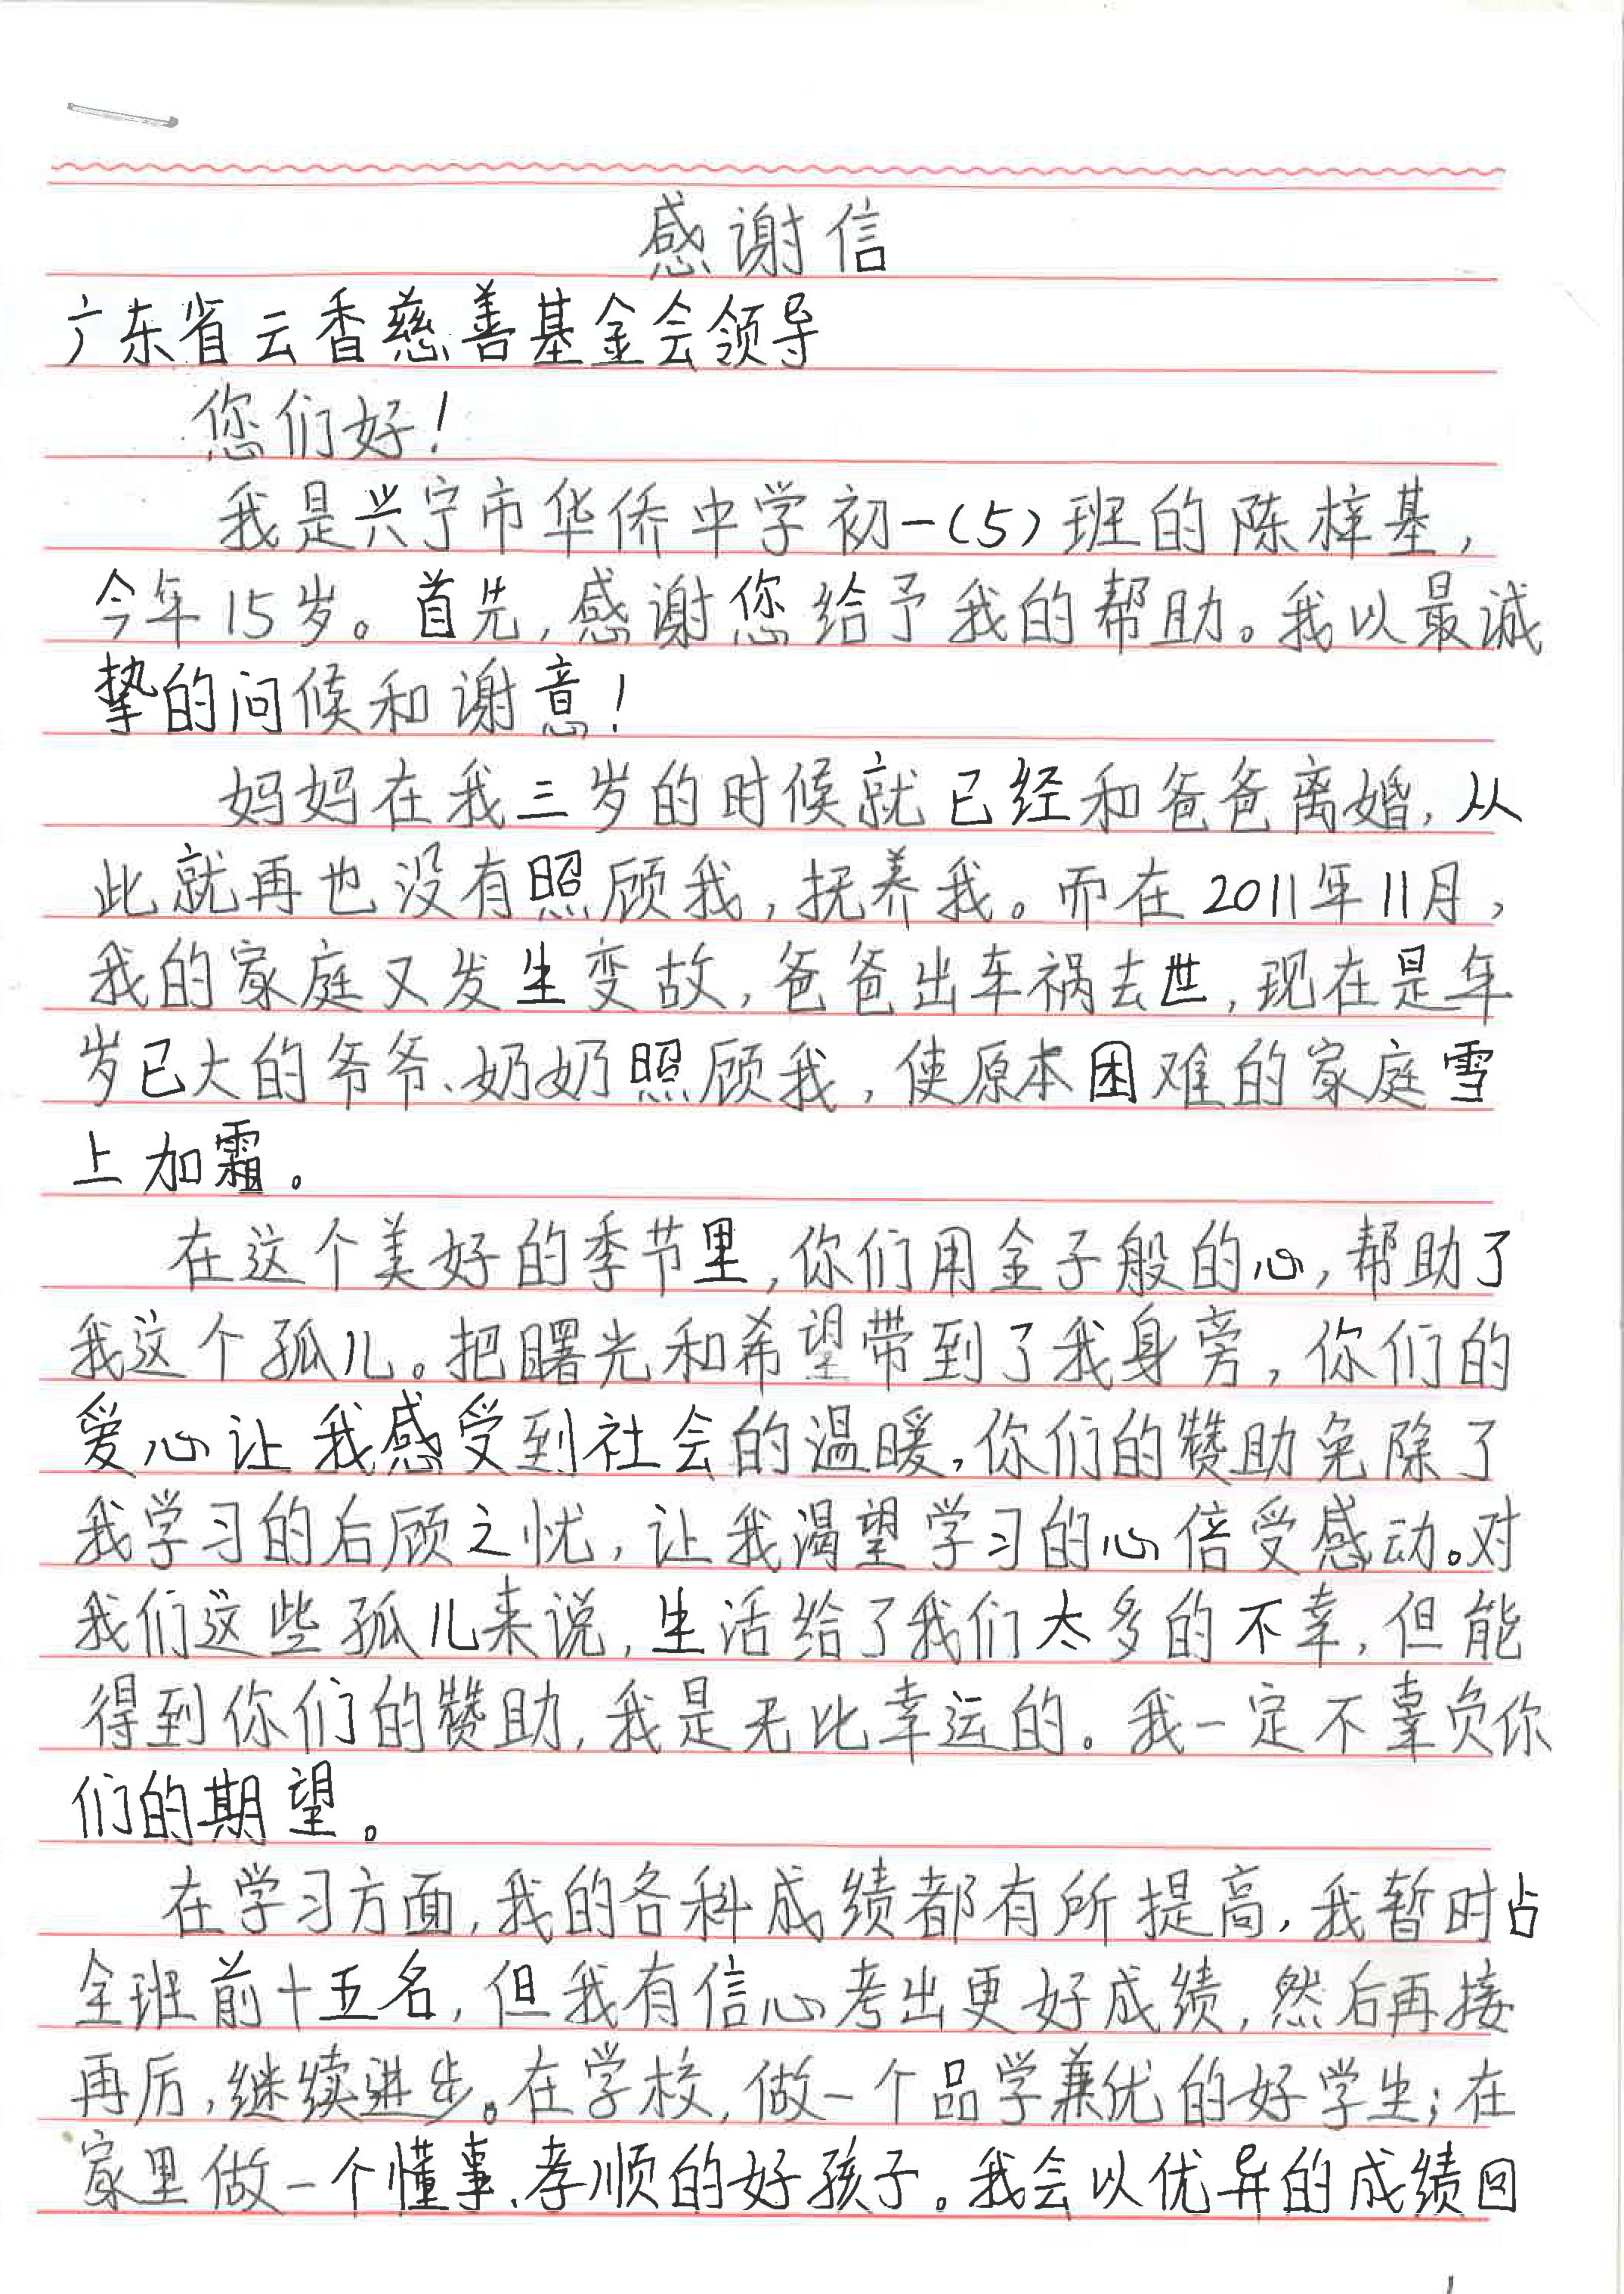 感谢信
广东省云香慈善基金会领导
您们好！
我是兴宁市华侨中学初一(5)班的陈梓基，
今年15岁。首先，感谢您给予我的帮助。我以最诚
挚的问候和谢意！
妈妈在我三岁的时候就已经和爸爸离婚，从
此就再也没有照顾我，抚养我。而在2011年11月，
我的家庭又发生变故，爸爸出车祸去世，现在是年
岁已大的爷爷、奶奶照顾我，使原本困难的家庭雪
上加霜。
在这个美好的季节里，你们用金子般的心，帮助了
我这个孤儿。把曙光和希望带到了我身旁，你们的
爱心让我感受到社会的温暖，你们的赞助免除了
我学习的后顾之忧，让我渴望学习的心倍受感动。对
我们这些孤儿来说，生活给了我们太多的不幸，但能
得到你们的赞助，我是无比幸运的。我一定不辜负你
们的期望。
在学习方面，我的各科成绩都有所提高，我暂时占
全班前十五名，但我有信心考出更好成绩，然后再接
再厉，继续进步。在学校，做一个品学兼优的好学生；在
家里做一个懂事、孝顺的好孩子。我会以优异的成绩回
1